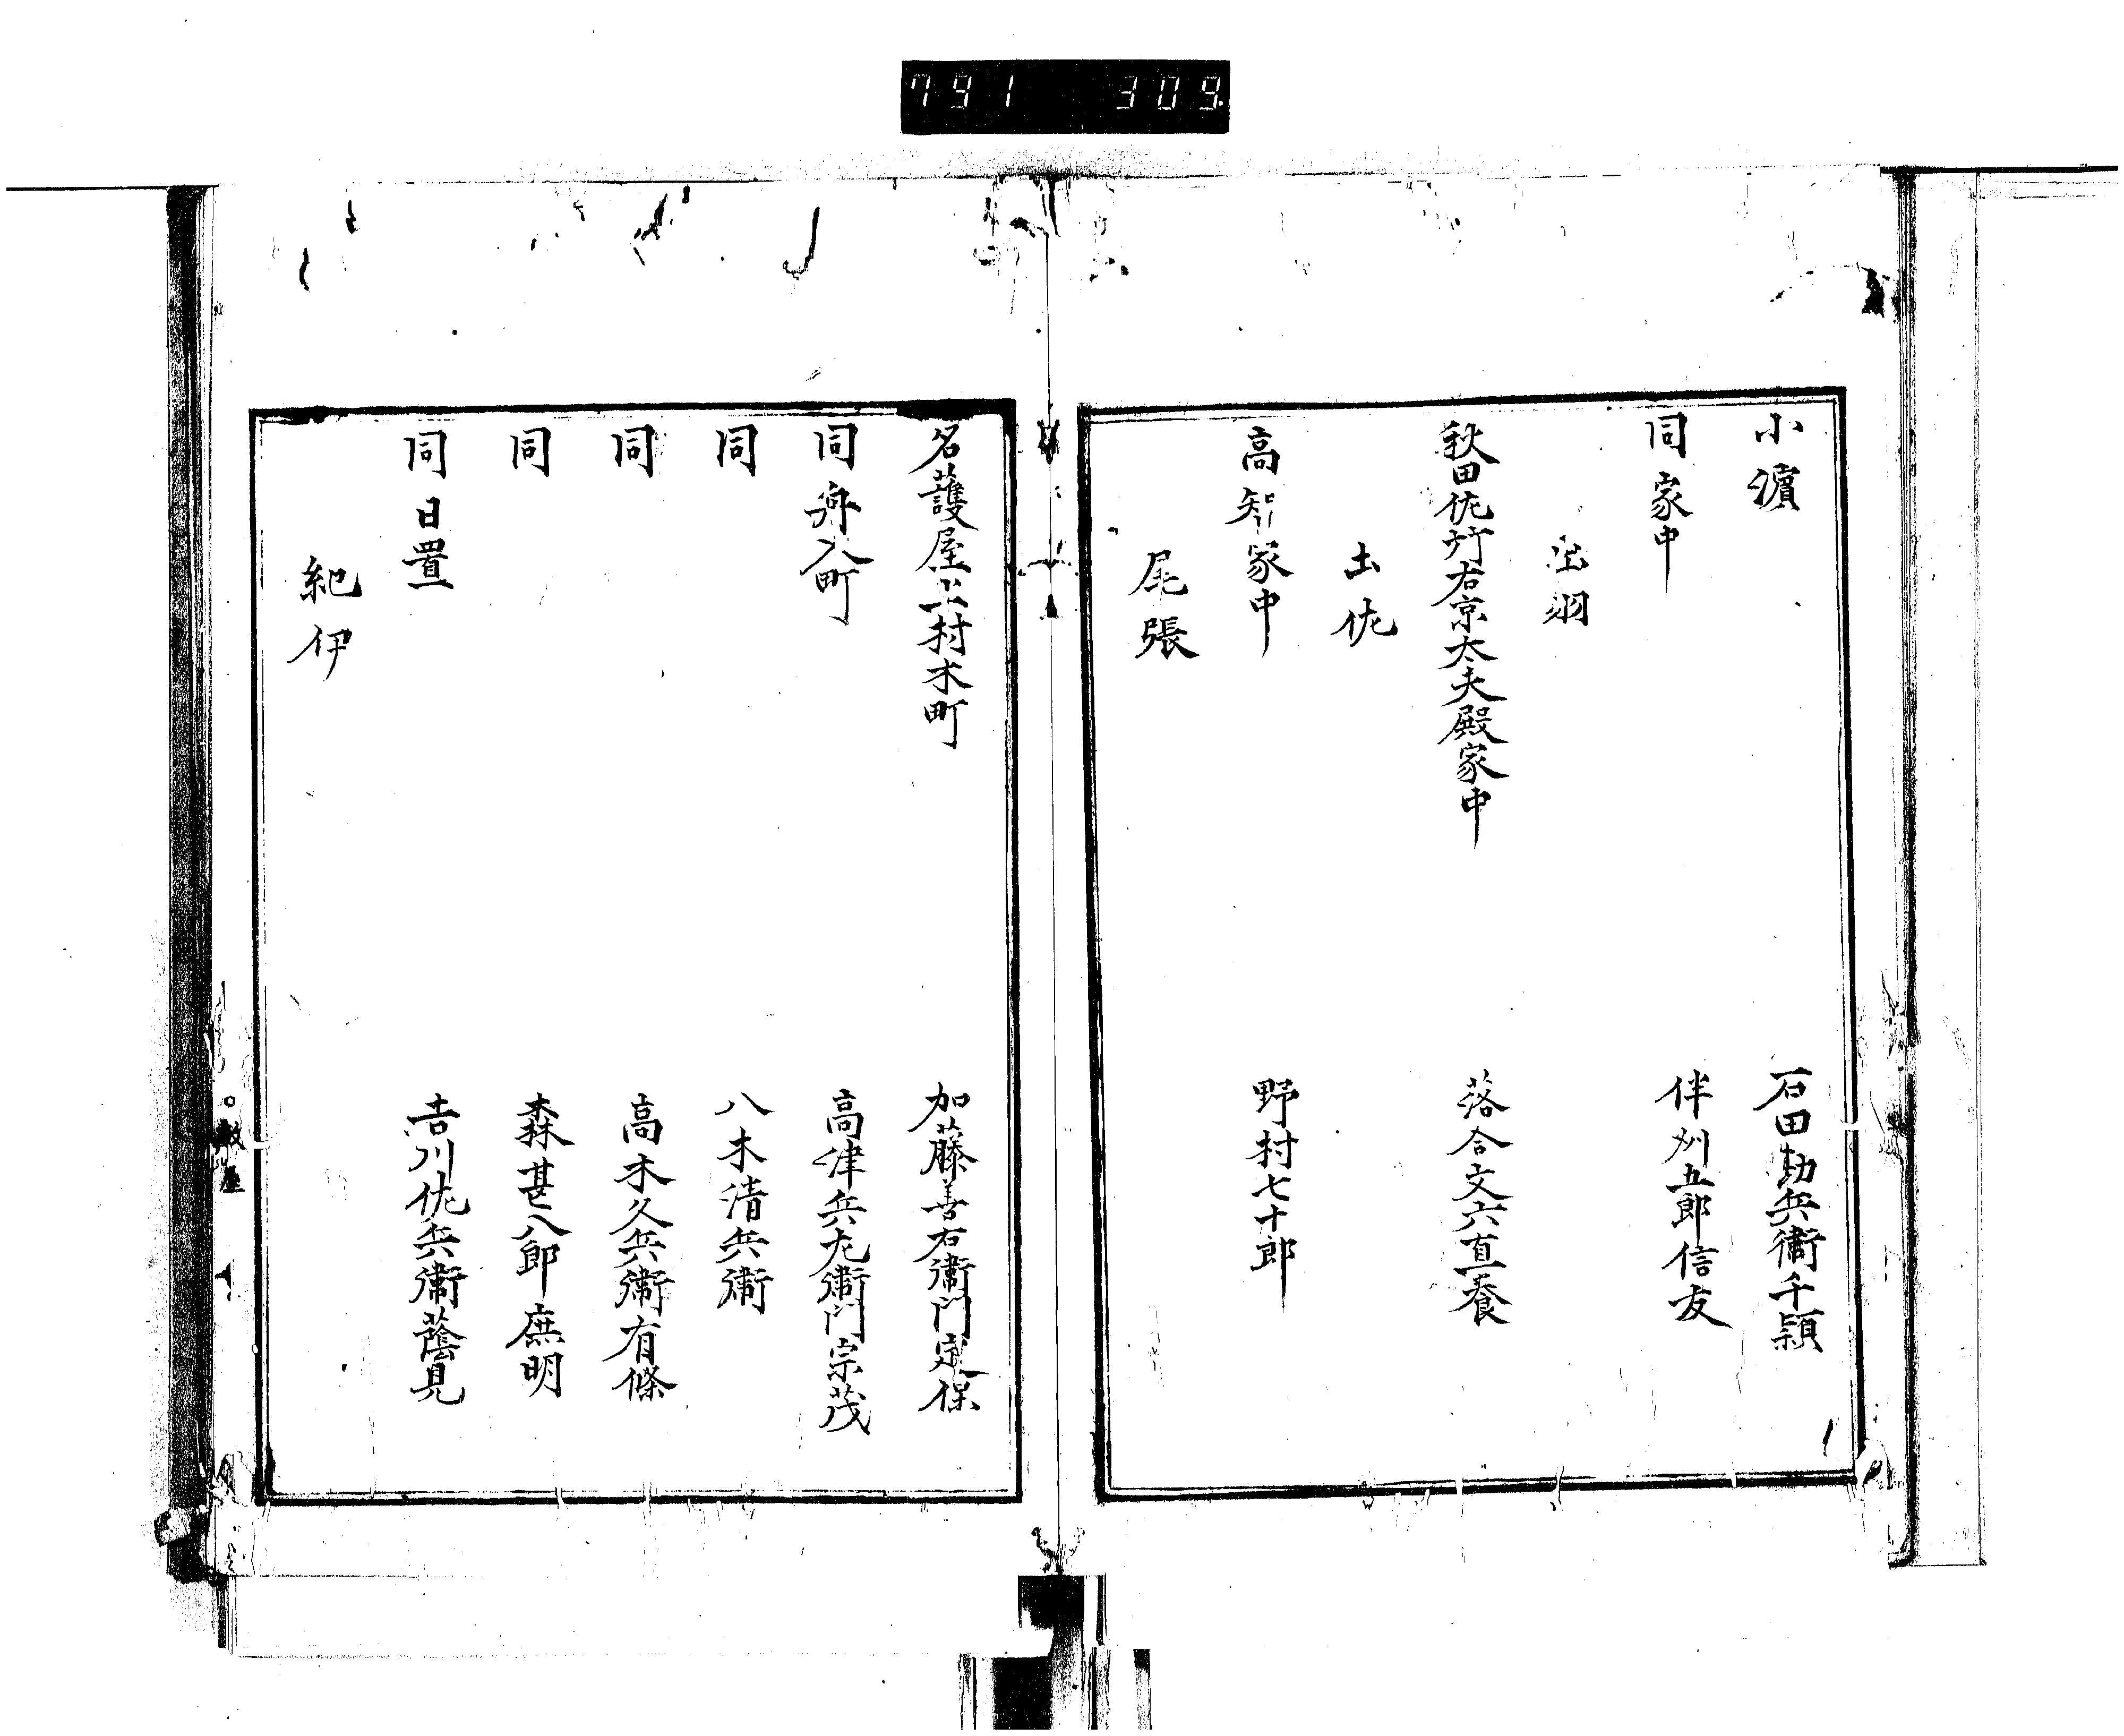 791 309
小濱 石田勘兵衛千頴
同家中 伴州五郎信友
出羽
秋田佐竹右京太夫殿家中 落合文六直養
土佐
高智家中 野村七十郎
尾張
名護屋上村木町 加藤善右衛門定保
同舟入町 高津兵左衛門宗茂
同 八木清兵衛
同 高木久兵衛有條
同 森甚八郎庶明
同日置 吉川佐兵衛蔭見
紀伊